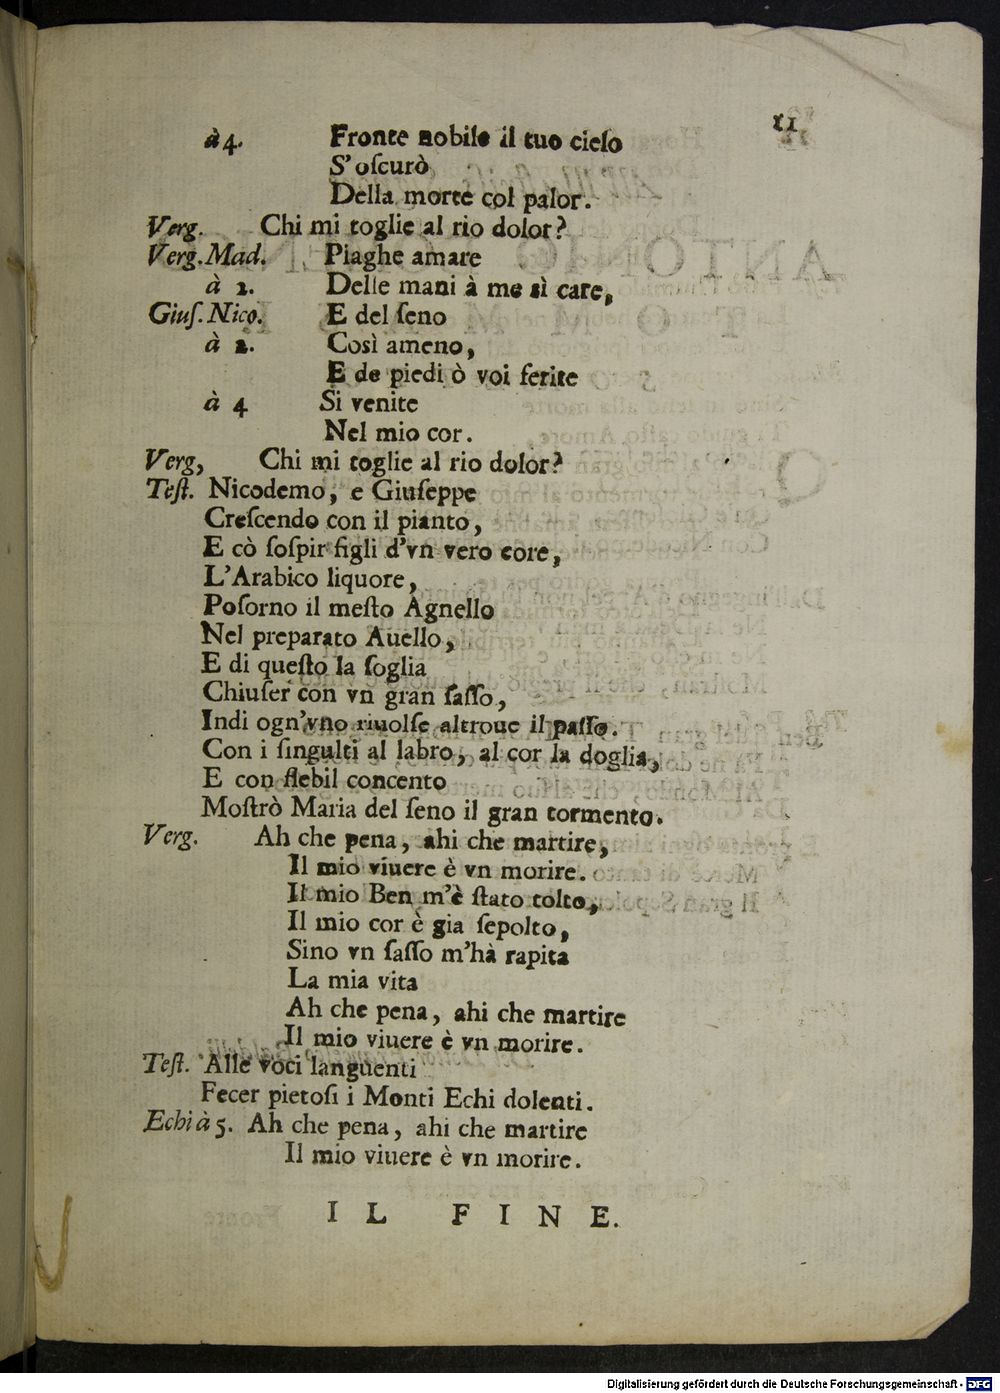 11
à 4. Fronte nobile il tuo cielo
S'oſcurò
Della morte col palor.
Verg. Chi mi toglie al rio dolor?
Verg. Mad. Piaghe amare
à 2. Delle mani à me sì care,
Giuſ. Nico. E del ſeno
à 2. Così ameno,
E de piedi ò voi ferite
à 4 Si venite
Nel mio cor.
Verg, Chi mi toglie al rio dolor?
Teſt. Nicodemo, e Giuſeppe
Creſcendo con il pianto,
E cò ſoſpir figli d'vn vero core,
L'Arabico liquore,
Poſorno il meſto Agnello
Nel preparato Auello,
E di queſto la ſoglia
Chiuſer con vn gran ſaſſo,
Indi ogn'vno riuolſe altroue il paſſo.
Con i ſingulti al labro, al cor la doglia,
E con flebil concento
Moſtrò Maria del ſeno il gran tormento.
Verg. Ah che pena, ahi che martire,
Il mio viuere è vn morire.
Il mio Ben m'è ſtato tolto,
Il mio cor è gia ſepolto,
Sino vn ſaſſo m'hà rapita
La mia vita
Ah che pena, ahi che martire
Il mio viuere è vn morire.
Teſt. Alle voci languenti
Fecer pietoſi i Monti Echi dolenti.
Echi à 5. Ah che pena, ahi che martire
Il mio viuere è vn morire.
IL FINE.
Digitalisierung gefördert durch die Deutsche Forschungsgemeinschaft - DFG